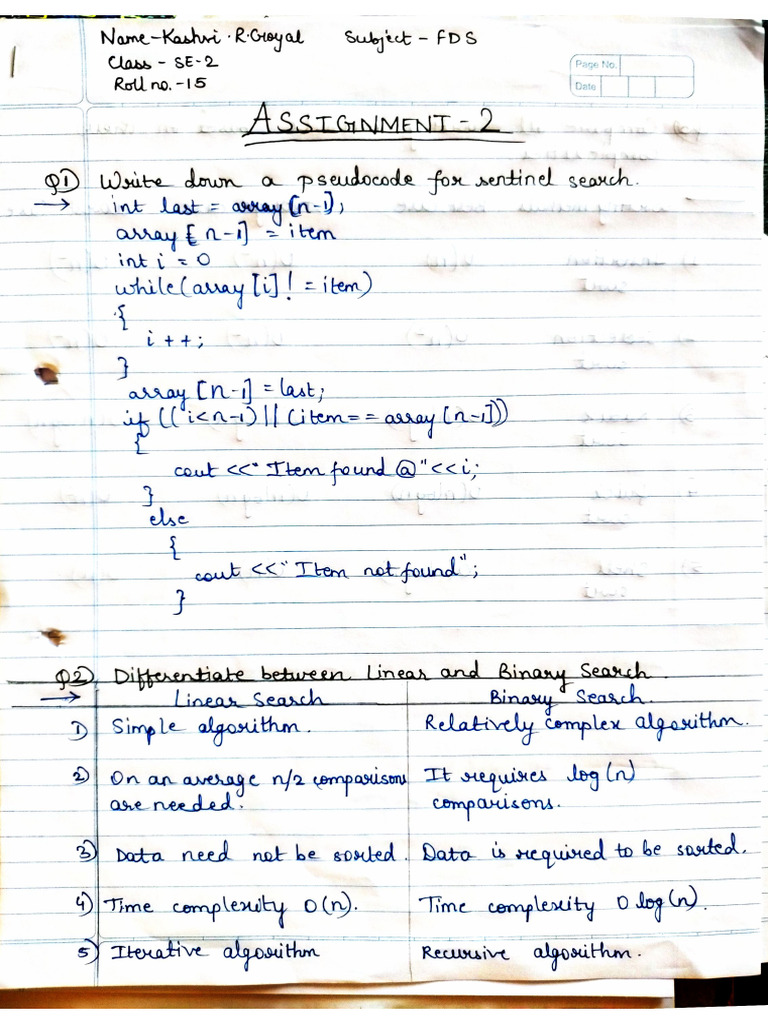 Name-Kashvi.R.Goyal Subject-FDS
Class - SE-2
Roll no.-15
Page No.
Date
ASSIGNMENT-2
Q1) Write down a pseudocode for sentinel search.
→ int last = array[n-1];
array[n-1] = item
int i = 0
while(array[i]! = item)
{
i++;
}
array[n-1] = last;
if ((i<n-1)||(item== array[n-1]))
{
cout <<"Item found @"<<i;
}
else
{
cout <<"Item not found";
}
Q2) Differentiate between Linear and Binary Search.
→ Linear Search Binary Search.
1) Simple algorithm. Relatively complex algorithm.
2) On an average n/2 comparisons It requires log(n)
are needed. comparisons.
3) Data need not be sorted. Data is required to be sorted.
4) Time complexity O(n). Time complexity O log(n).
5) Iterative algorithm Recursive algorithm.